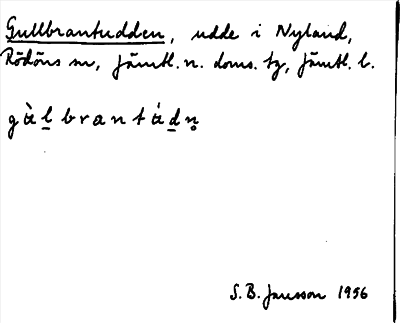 Gullbrantudden, udde i Nyland,
Rödöns sn, Jämtl. n. doms. tg, Jämtl. l.
gàl̲brantád̲n̥
S. B. Jansson 1956